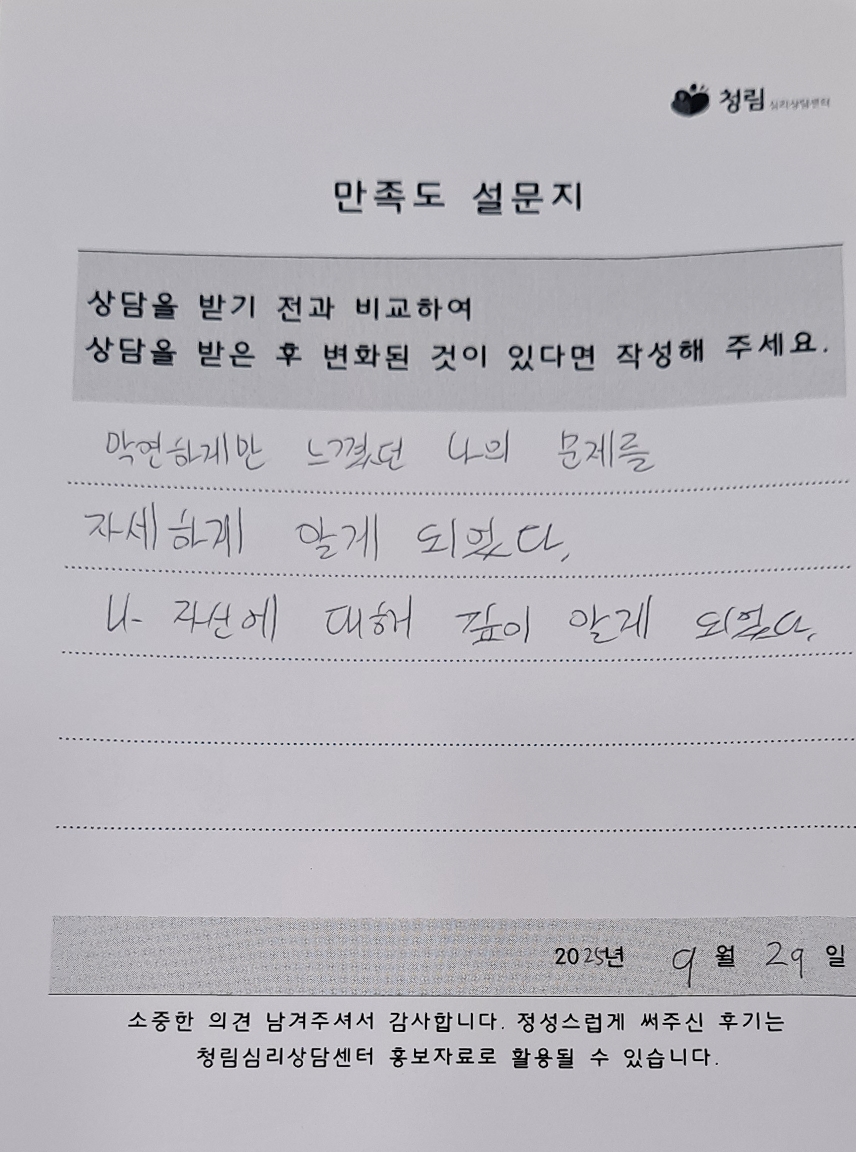 청림 심리상담센터
만족도 설문지
상담을 받기 전과 비교하여
상담을 받은 후 변화된 것이 있다면 작성해 주세요.
막연하게만 느꼈던 나의 문제를
자세하게 알게 되었다.
나 자신에 대해 깊이 알게 되었다.
2025년 9월 29일
소중한 의견 남겨주셔서 감사합니다. 정성스럽게 써주신 후기는
청림심리상담센터 홍보자료로 활용될 수 있습니다.